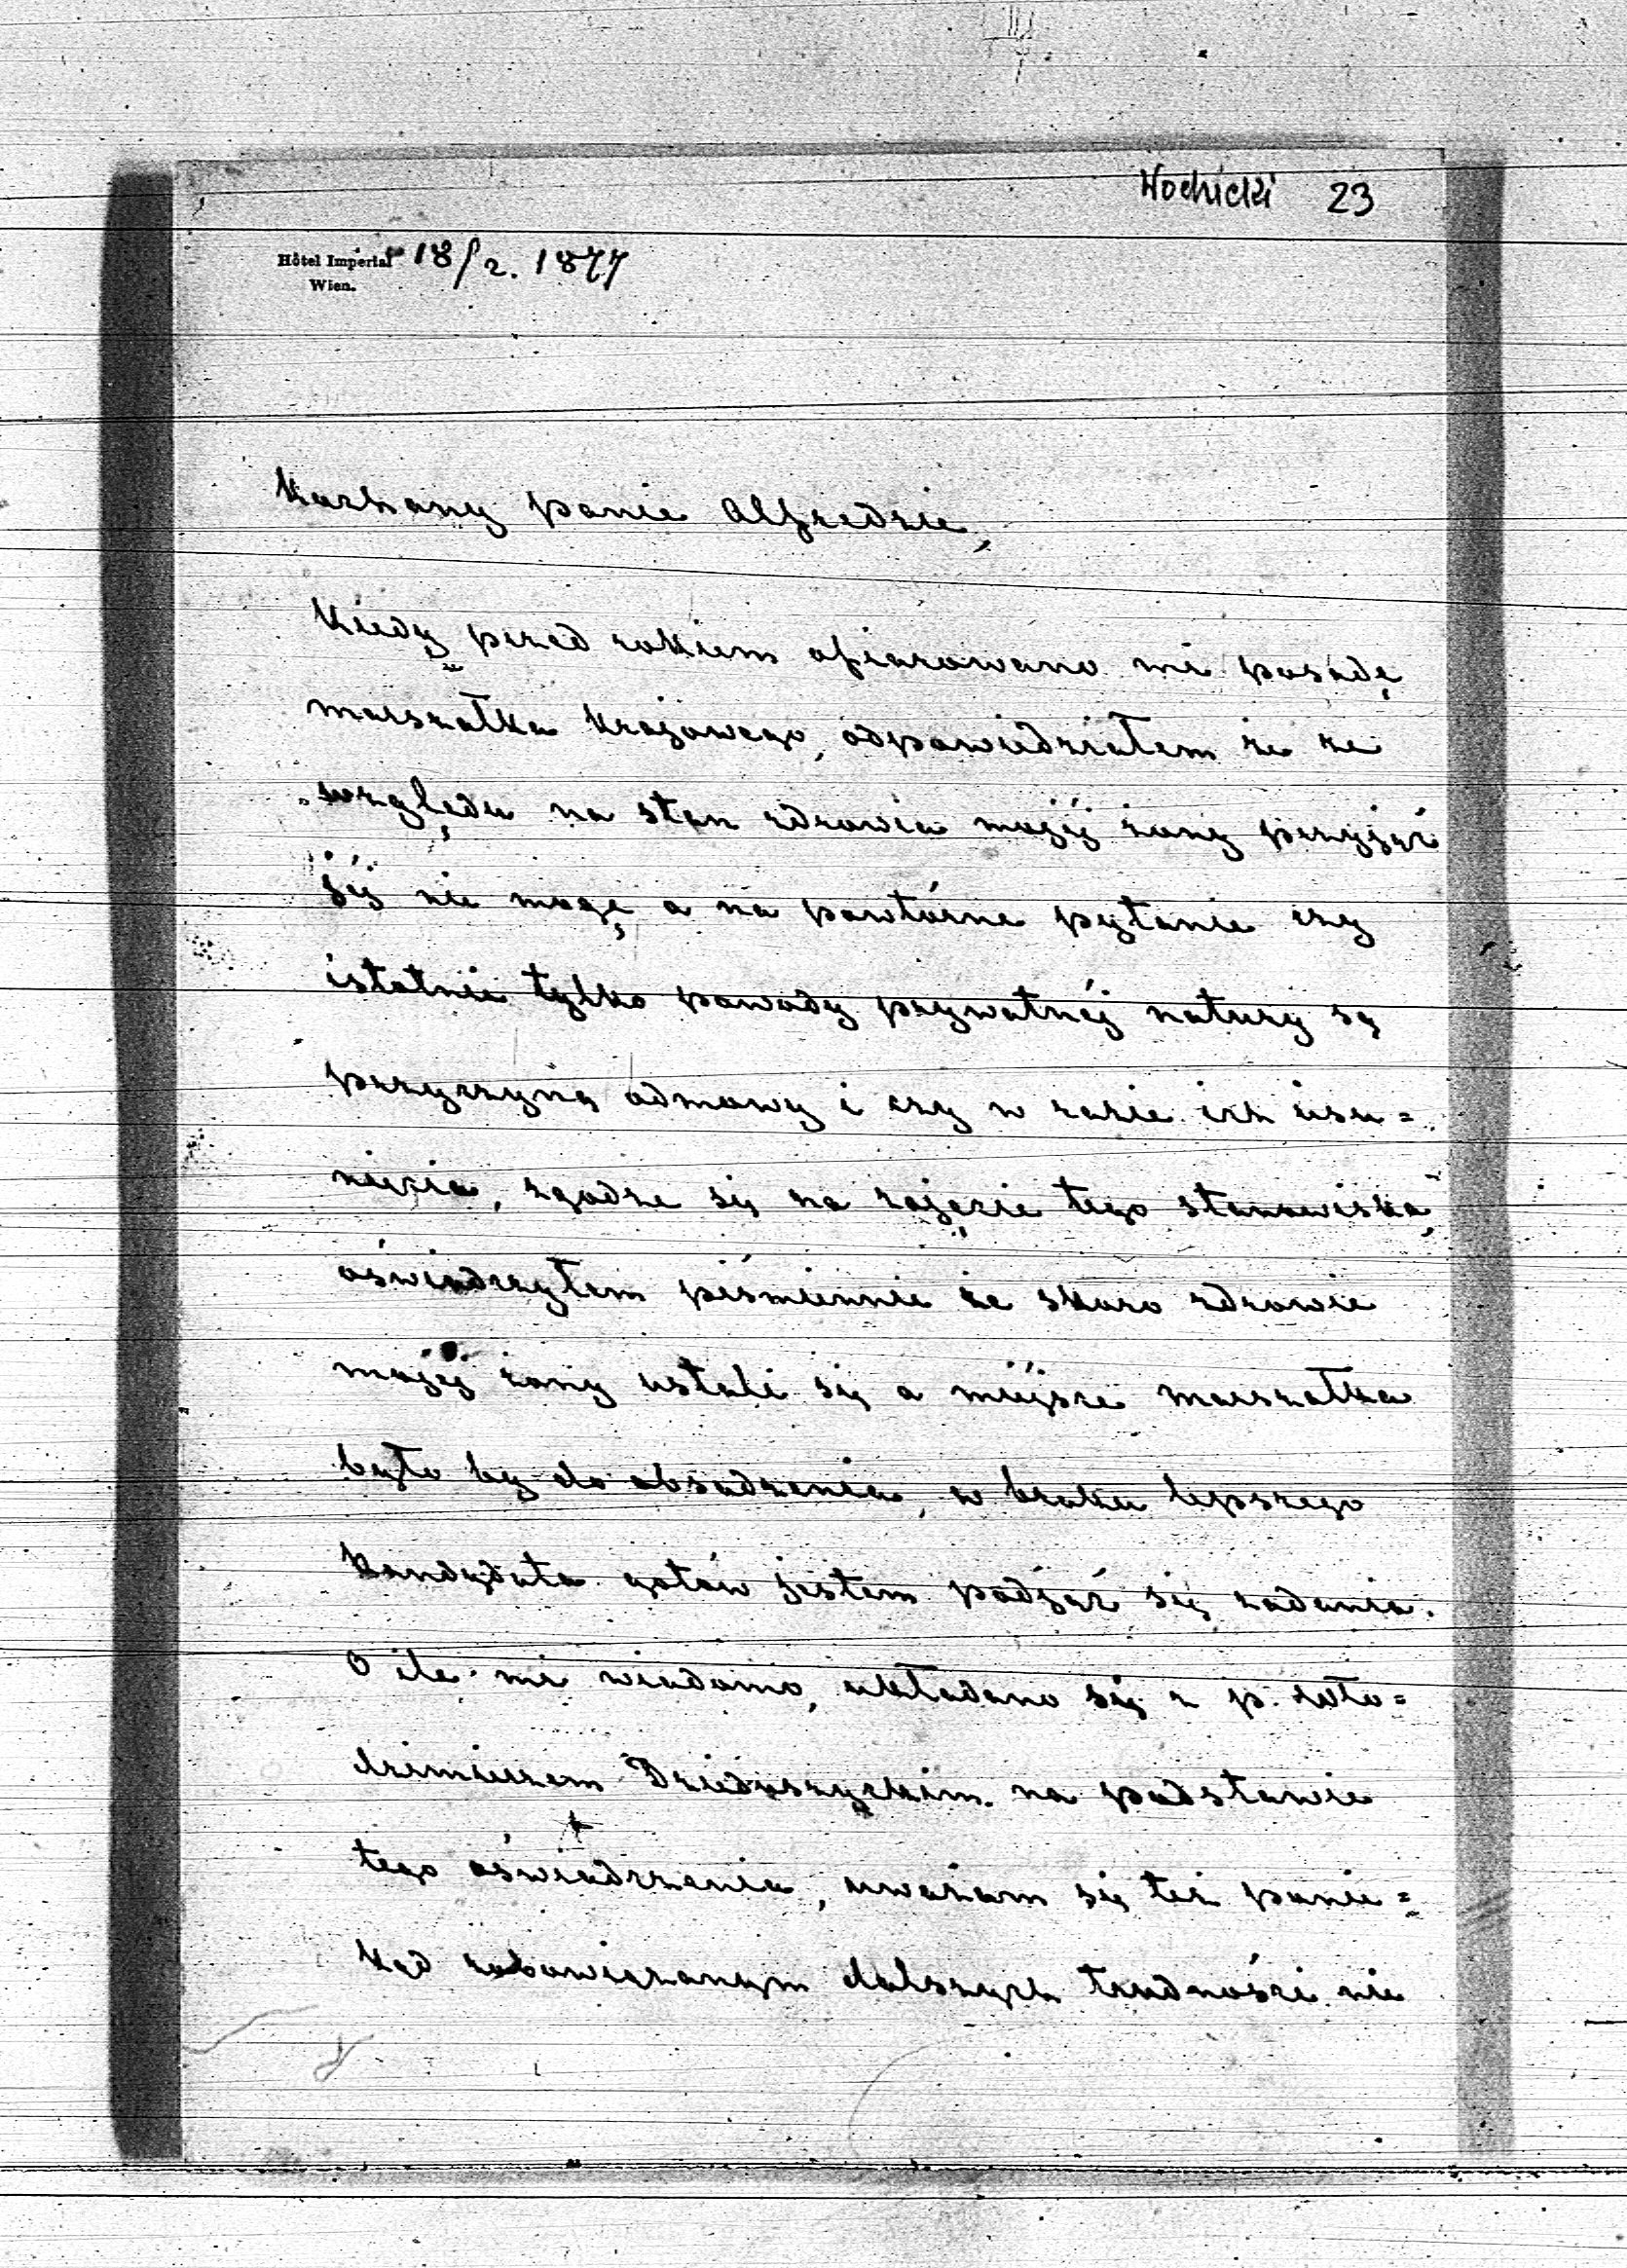 Wodzicki 23
Hôtel Impérial 18/2. 1877
Wien.
Kochany panie Alfredzie,
Kiedy przed rokiem ofiarowano mi posadę
marszałka krajowego, odpowiedziałem że ze
względu na stan zdrowia mojéj żony przyjąć
jéj nie mogę a na powtórne pytanie czy
istotnie tylko powody prywatnéj natury są
przyczyną odmowy i czy w razie ich usu=
nięcia, zgodzę się na zajęcie tego stanowiska,
oświadczyłem piśmiennie że skoro zdrowie
mojéj żony ustali się a miéjsce marszałka
było by do obsadzenia, w braku lepszego
kandydata gotów jestem podjąć się zadania.
O ile mi wiadomo, układano się z p. Wło=
dzimierzem Dzieduszyckim na podstawie
tego oświadczenia, uważam się też ponie=
kąd zobowiązanym dalszych trudności nie